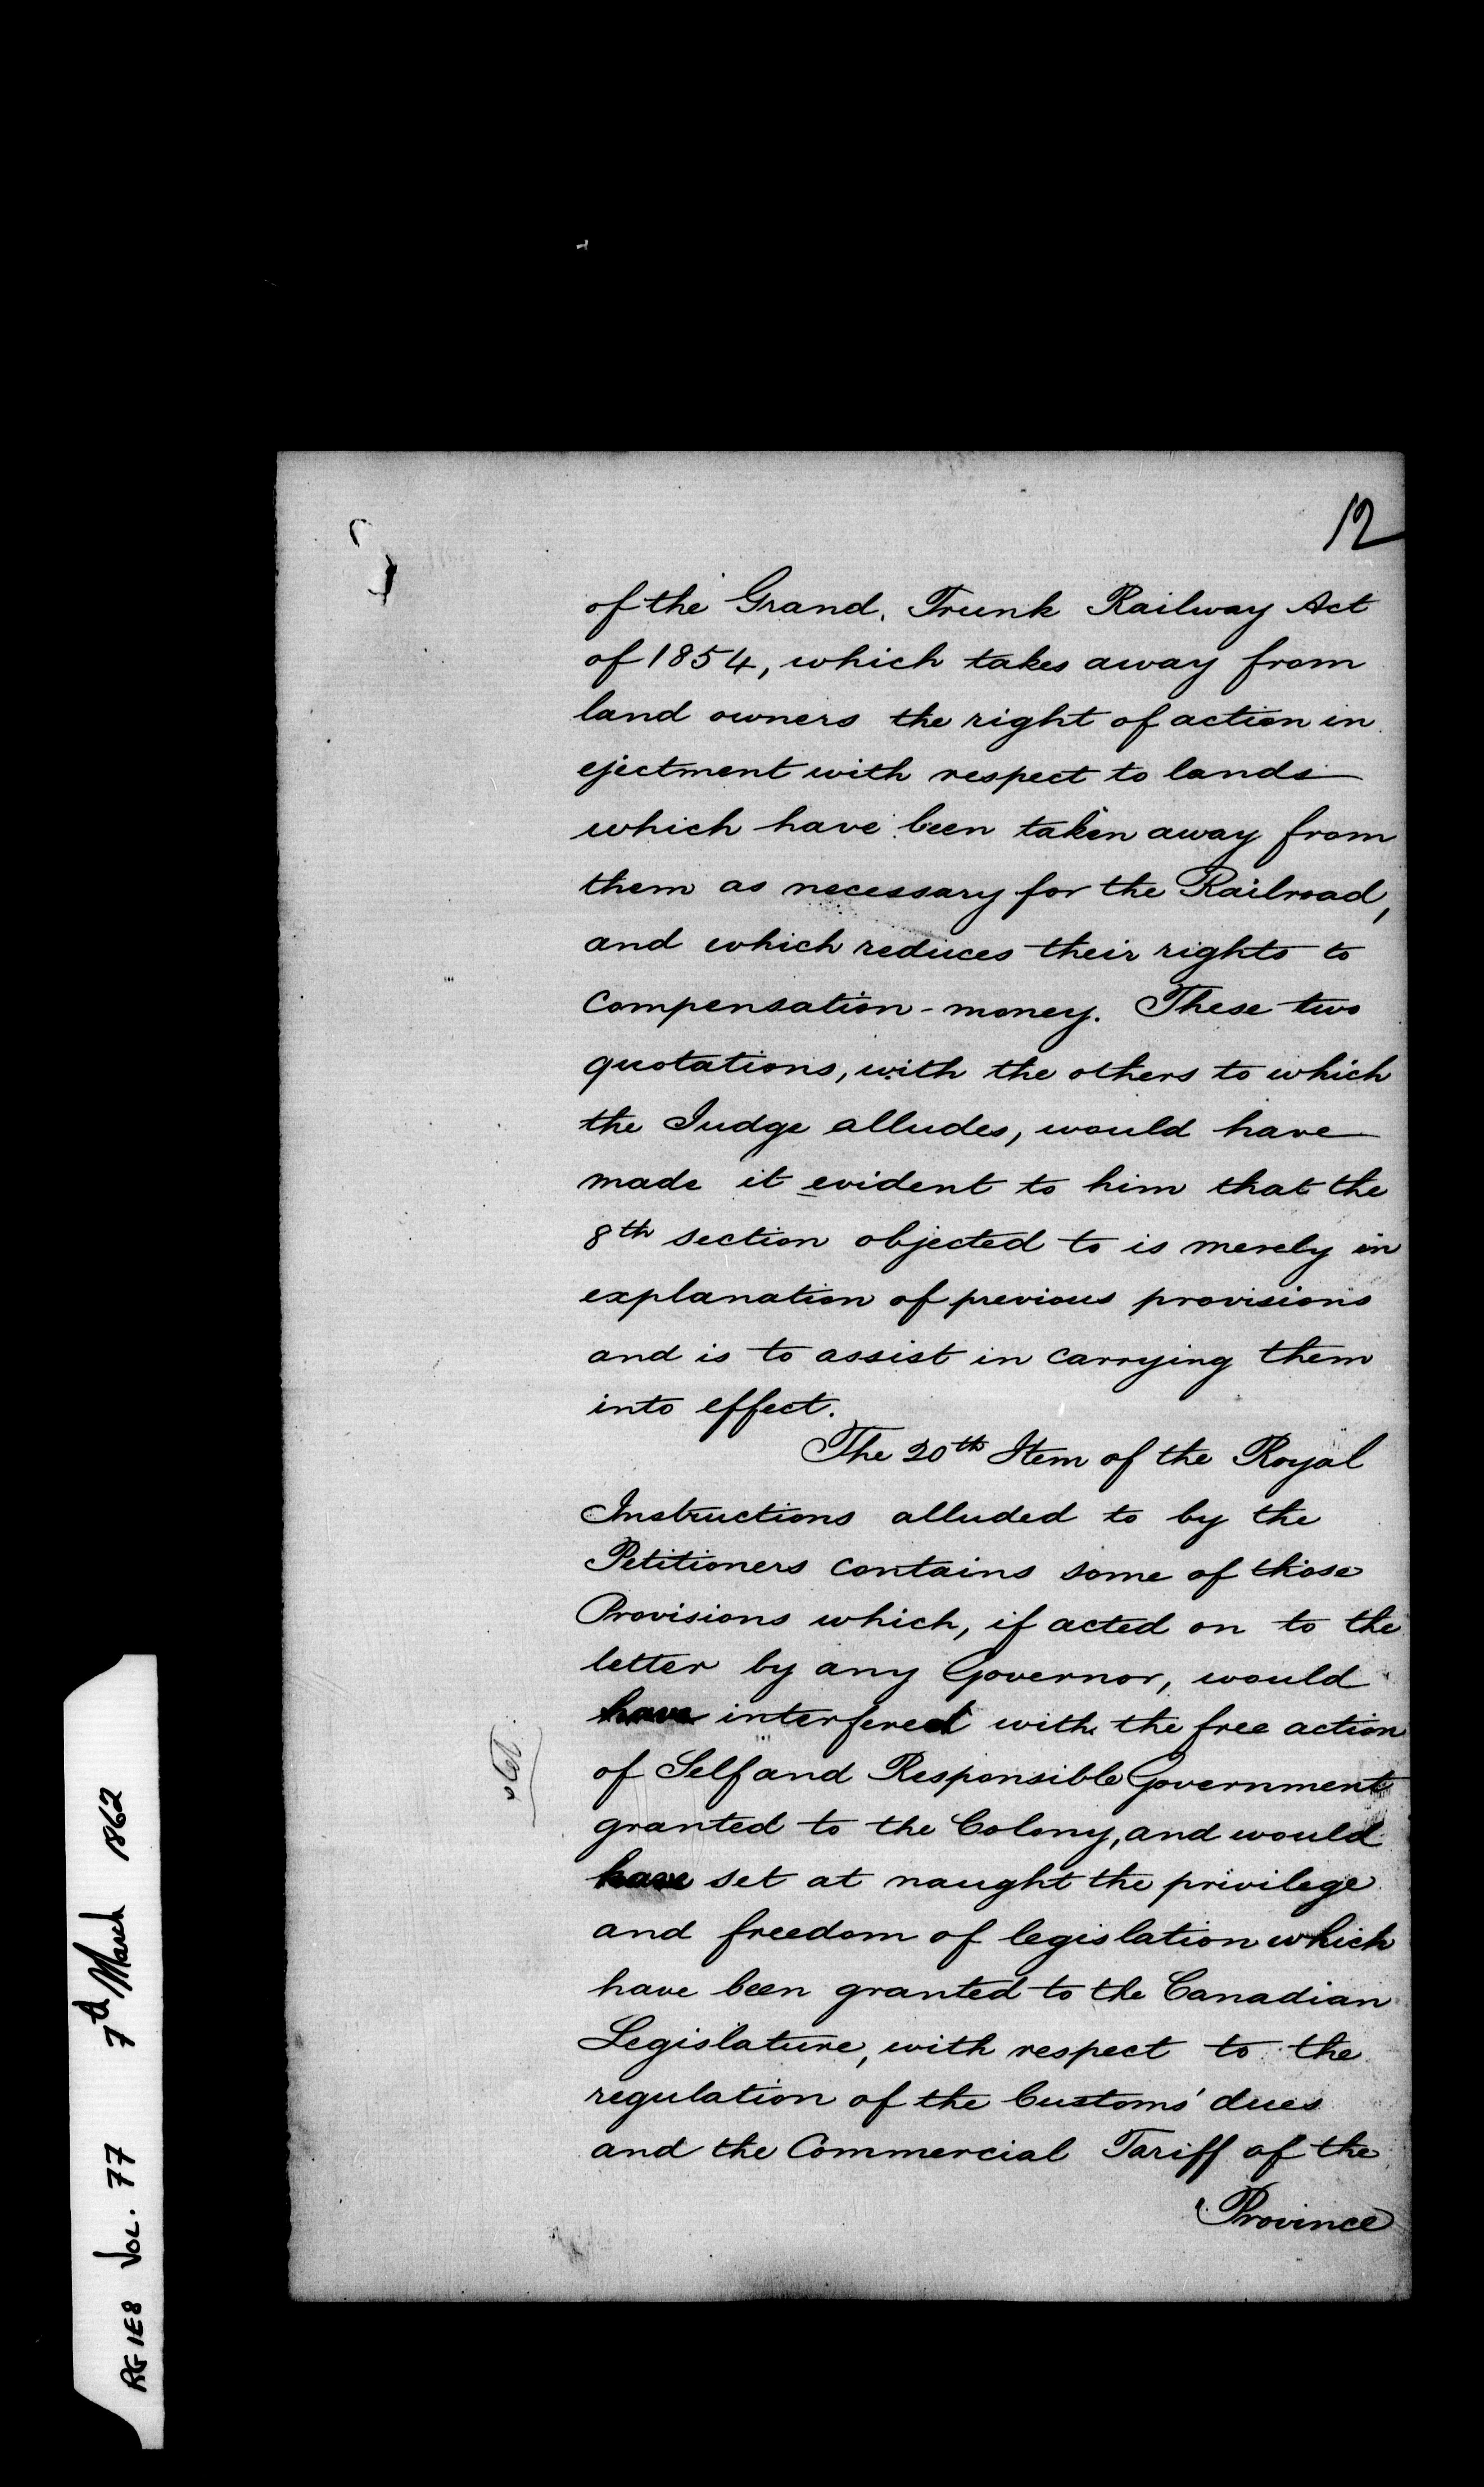 12
of the Grand, Trunk Railway Act
of 1854, which takes away from
land owners the right of action in
ejectment with respect to lands
which have been taken away from
them as necessary for the Railroad,
and which reduces their rights to
compensation-money. These two
quotations, with the others to which
the Judge alludes, would have
made it evident to him that the
8th section objected to is merely in
explanation of previous provisions
and is to assist in carrying them
into effect.
The 20th Item of the Royal
Instructions alluded to by the
Petitioners contains some of those
Provisions which, if acted on to the
letter by any Governor, would
have interfered with the free action
stet.
of Self and Responsible Government
granted to the Colony, and would
have set at naught the privilege
and freedom of legislation which
have been granted to the Canadian
Legislature, with respect to the
regulation of the Customs' dues
and the Commercial Tariff of the
Province
RG 1E8 VOL. 77 7th March 1862